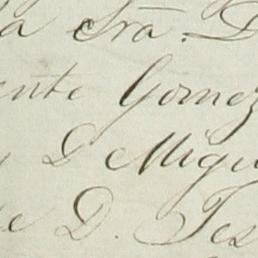 la Sra. D
ente Gomez
y D Migu
de D. Tes